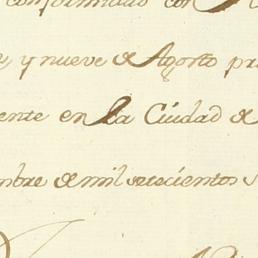 conformidad con
y nueve de Agosto pr
ente en la Ciudad de
mbre de mil setecientos s